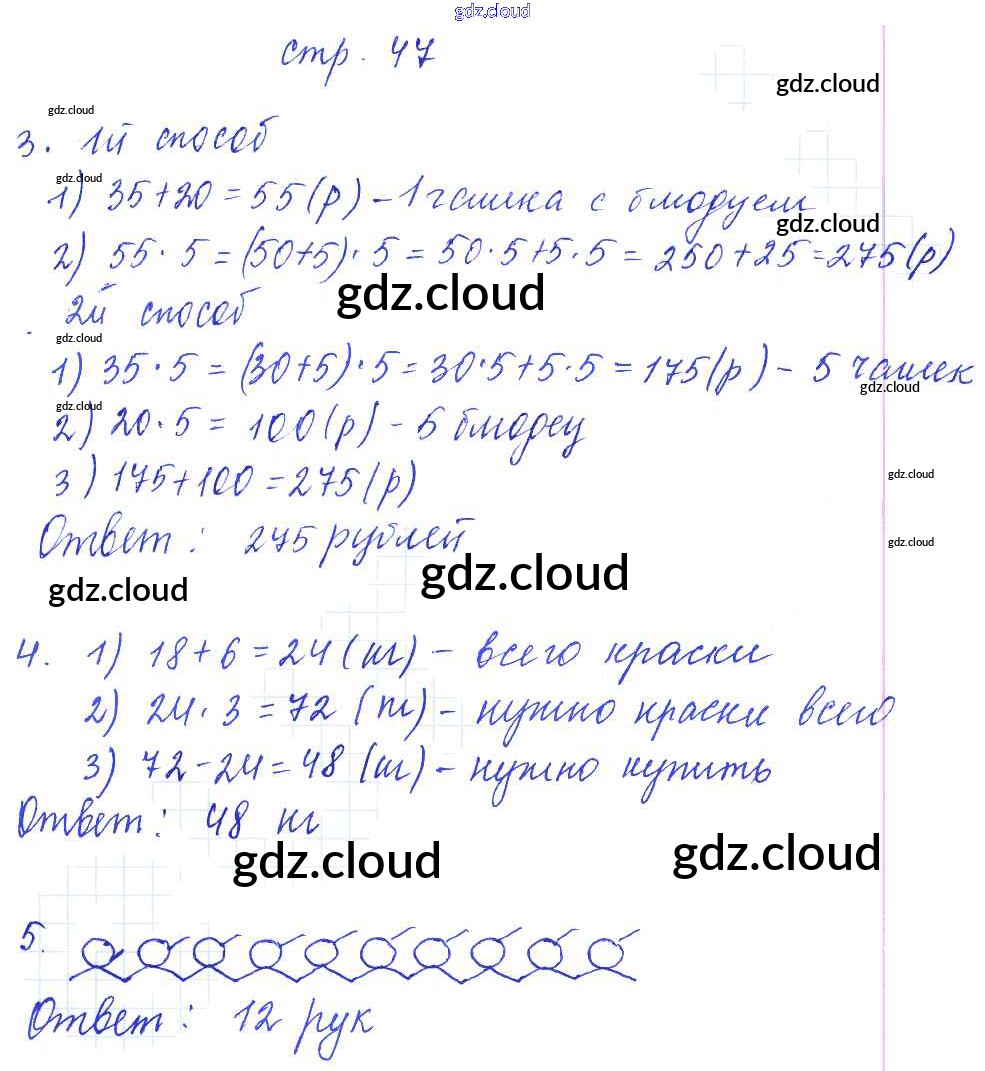 gdz.cloud
стр. 47
gdz.cloud
gdz.cloud
3. 1й способ
gdz.cloud
1) 35+20=55(р)-1 чашка с блюдцем
gdz.cloud
2) 55·5=(50+5)·5=50·5+5·5=250+25=275(р)
gdz.cloud
2й способ
gdz.cloud
1) 35·5=(30+5)·5=30·5+5·5=175(р)-5 чашек
gdz.cloud
gdz.cloud
2) 20·5=100(р)-5 блюдец
3) 175+100=275(р)
gdz.cloud
Ответ: 275 рублей
gdz.cloud
gdz.cloud
gdz.cloud
4. 1) 18+6=24(кг)-всего краски
2) 24·3=72(кг)-нужно краски всего
3) 72-24=48(кг)-нужно купить
Ответ: 48 кг
gdz.cloud
gdz.cloud
5.
Ответ: 12 рук